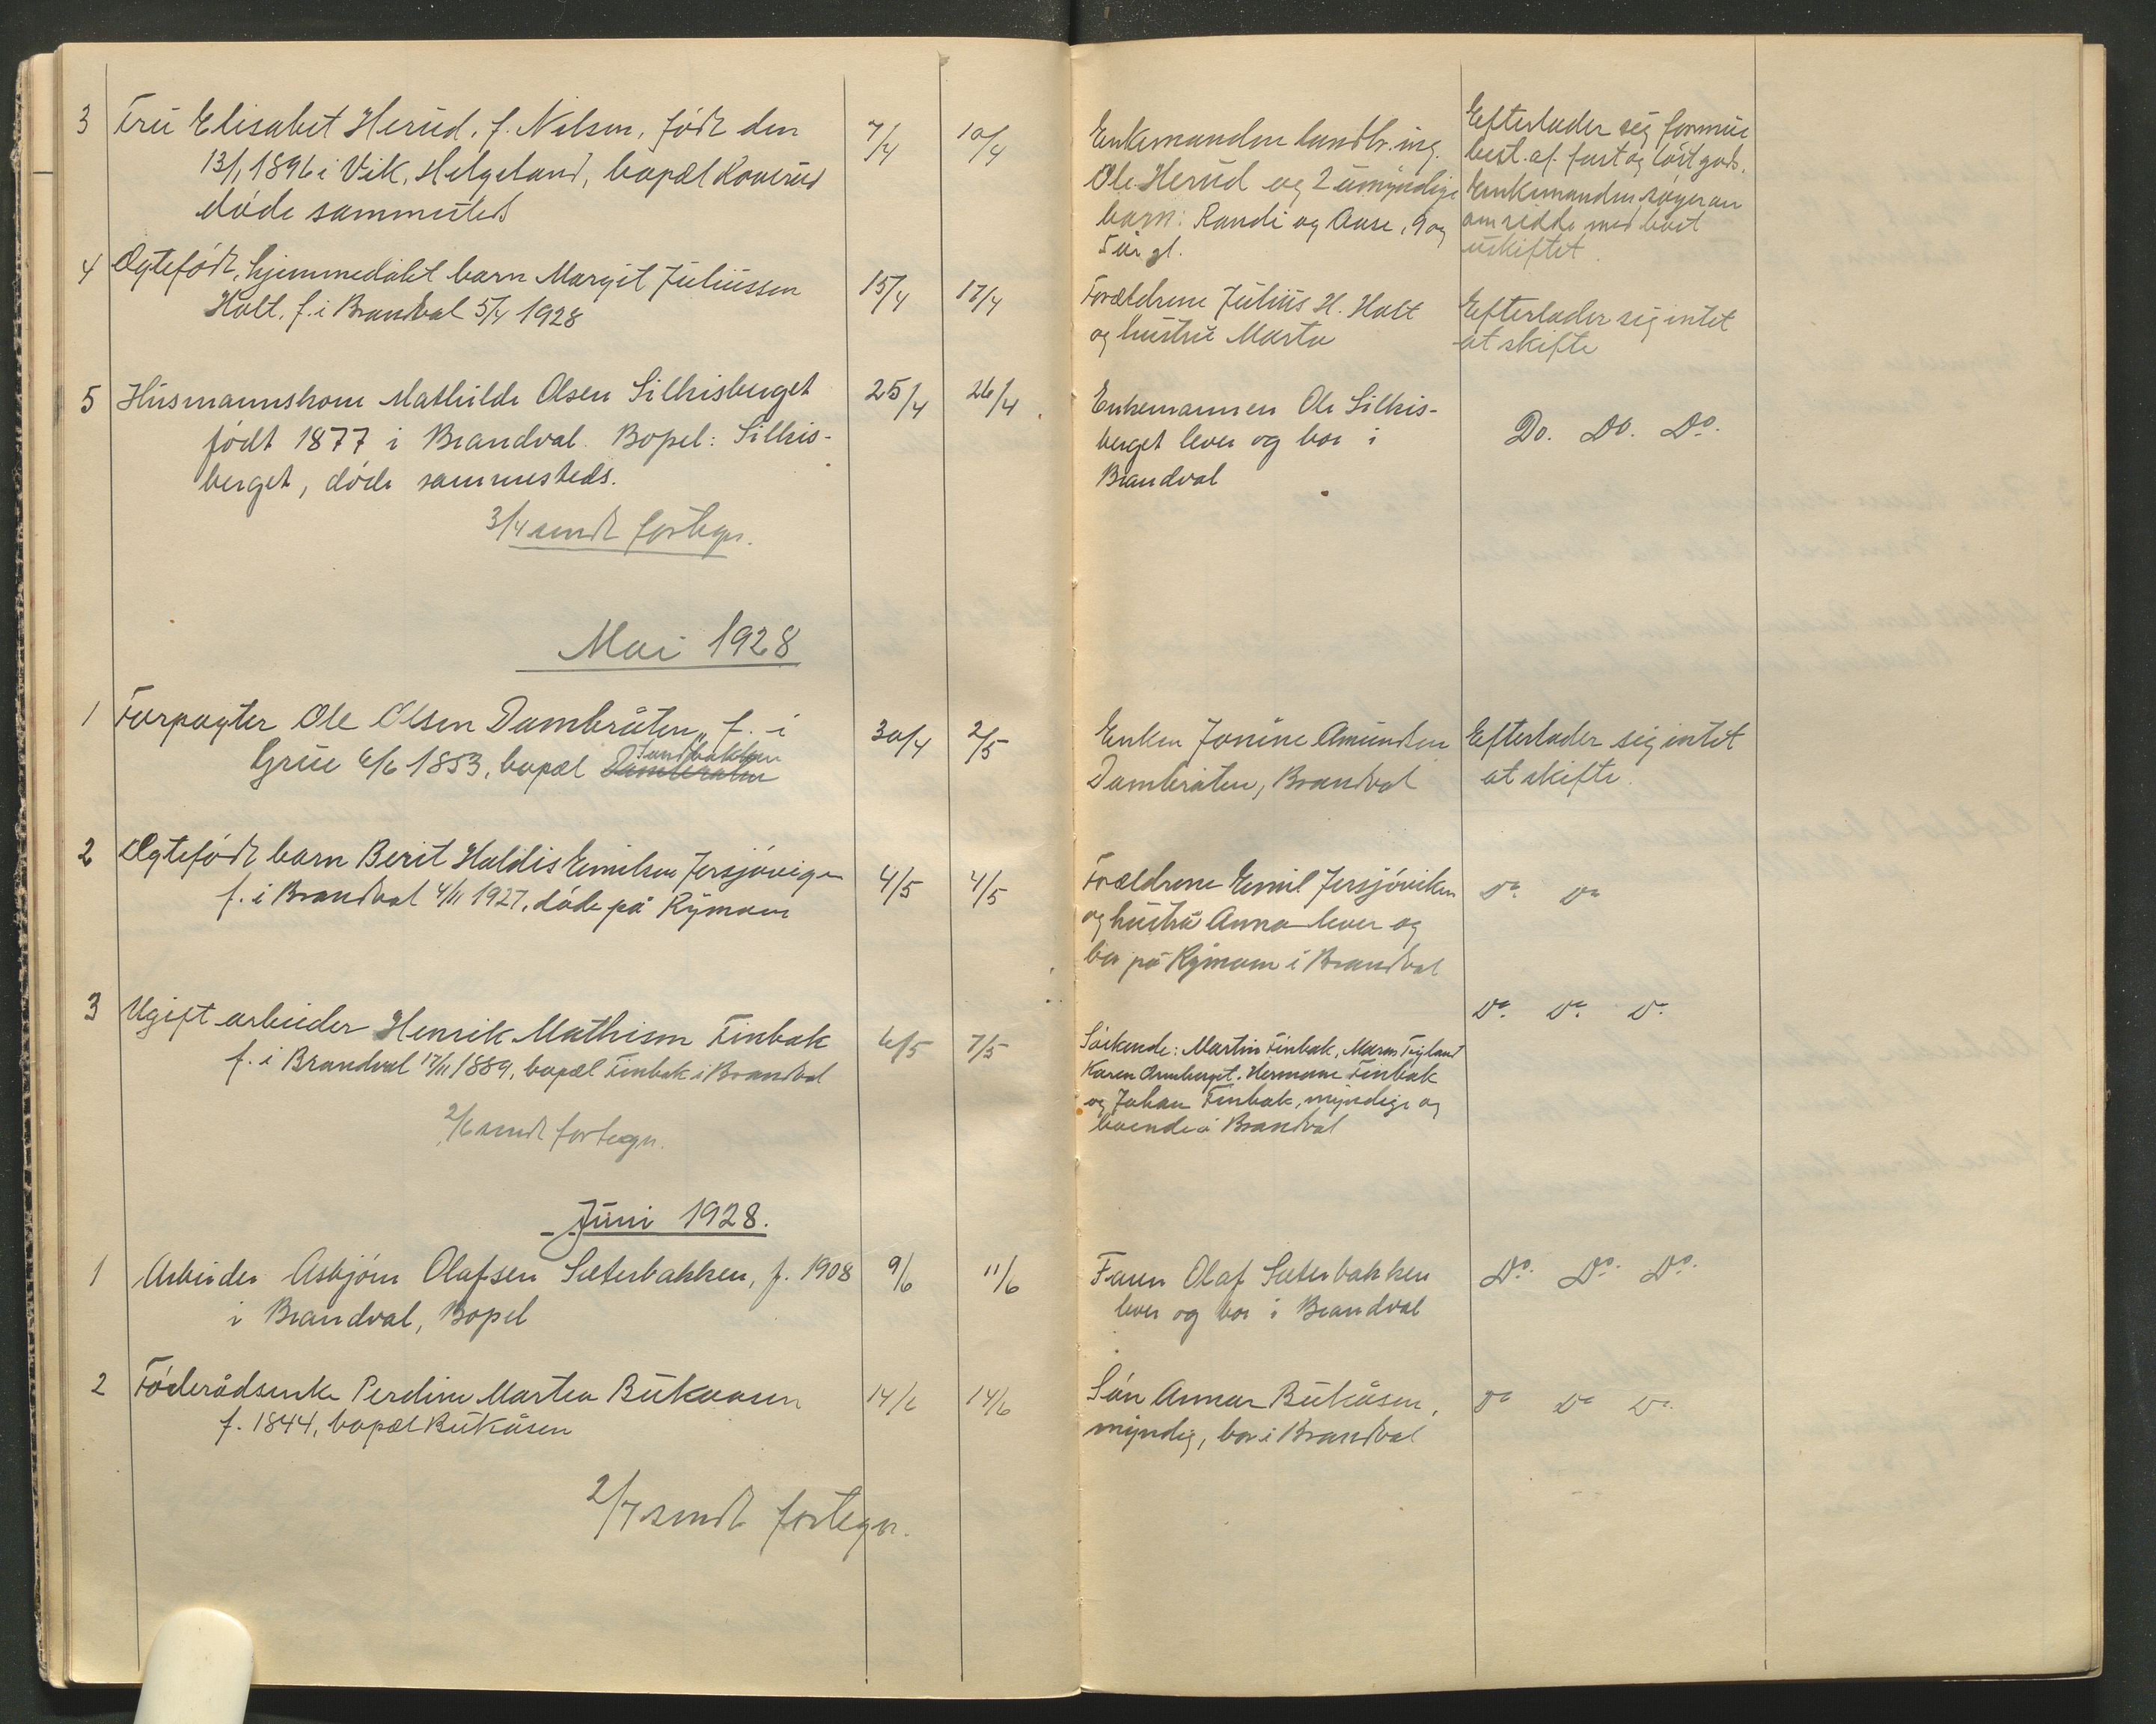 3 Fru Elisabet Herud, f. Nilsen, født den 7/4 10/4
13/1 1896 i Vik, Helgeland, bopæl Roverud
døde sammesteds
Enkemanden landbr.ing.
Ole Herud og 2 umyndige
barn: Randi og Aase, 9 og
5 år gl.
Efterlader sig formue
best. af fast og løst gods.
Enkemanden søger om
om sidde med boet
uskiftet.
4 Ægtefødt, hjemmedøbt barn Margit Juliussen 15/4 17/4
Holt, f. i Brandval 5/4 1928
Forældrene Julius H. Holt
og hustru Marta
Efterlader sig intet
at skifte
5 Husmannskone Mathilde Olsen Silkisberget 25/4 26/4
født 1877 i Brandval. Bopel: Silkis-
berget, døde sammesteds.
Enkemannen Ole Silkis-
berget lever og bor i
Brandval
Do. Do. Do.
3/4 sendt fortegn.
Mai 1928
1 Forpagter Ole Olsen Dambråten, f. i 30/4 2/5
Grue 6/6 1853, bopæl Dambråten
Sandbakken
Enken Jonine Amundsen
Dambråten, Brandval
Efterlader sig intet
at skifte.
2 Ægtefødt barn Berit Haldis Emilsen Jersjøvigen 4/5 4/5
f. i Brandval 4/11 1927, døde på Rymoen
Forældrene Emil Jersjøviken
og hustru Anna lever og
bor på Rymoen i Brandval
Do Do
3 Ugift arbeider Henrik Mathisen Finbak 6/5 7/5
f. i Brandval 17/11 1889, bopæl Finbak i Brandval
Søskende: Martin Finbak, Maren
Karen Hermane Finbak
og Johan Finbak, myndige og
boende i Brandval
Do. Do. Do.
2/6 sendt fortegn.
Juni 1928.
1 Arbeider Asbjørn Olafsen Sæterbakken, f. 1908 9/6 11/6
i Brandval, Bopel
Faren Olaf Sæterbakken
lever og bor i Brandval
Do. Do. Do.
2 Føderådsenke Perdine Martea Bukaasen 14/6 14/6
f. 1844, bopæl Bukåsen
Søn Annar Bukåsen,
myndig, bor i Brandval
Do Do Do.
2/7 sendt fortegn.